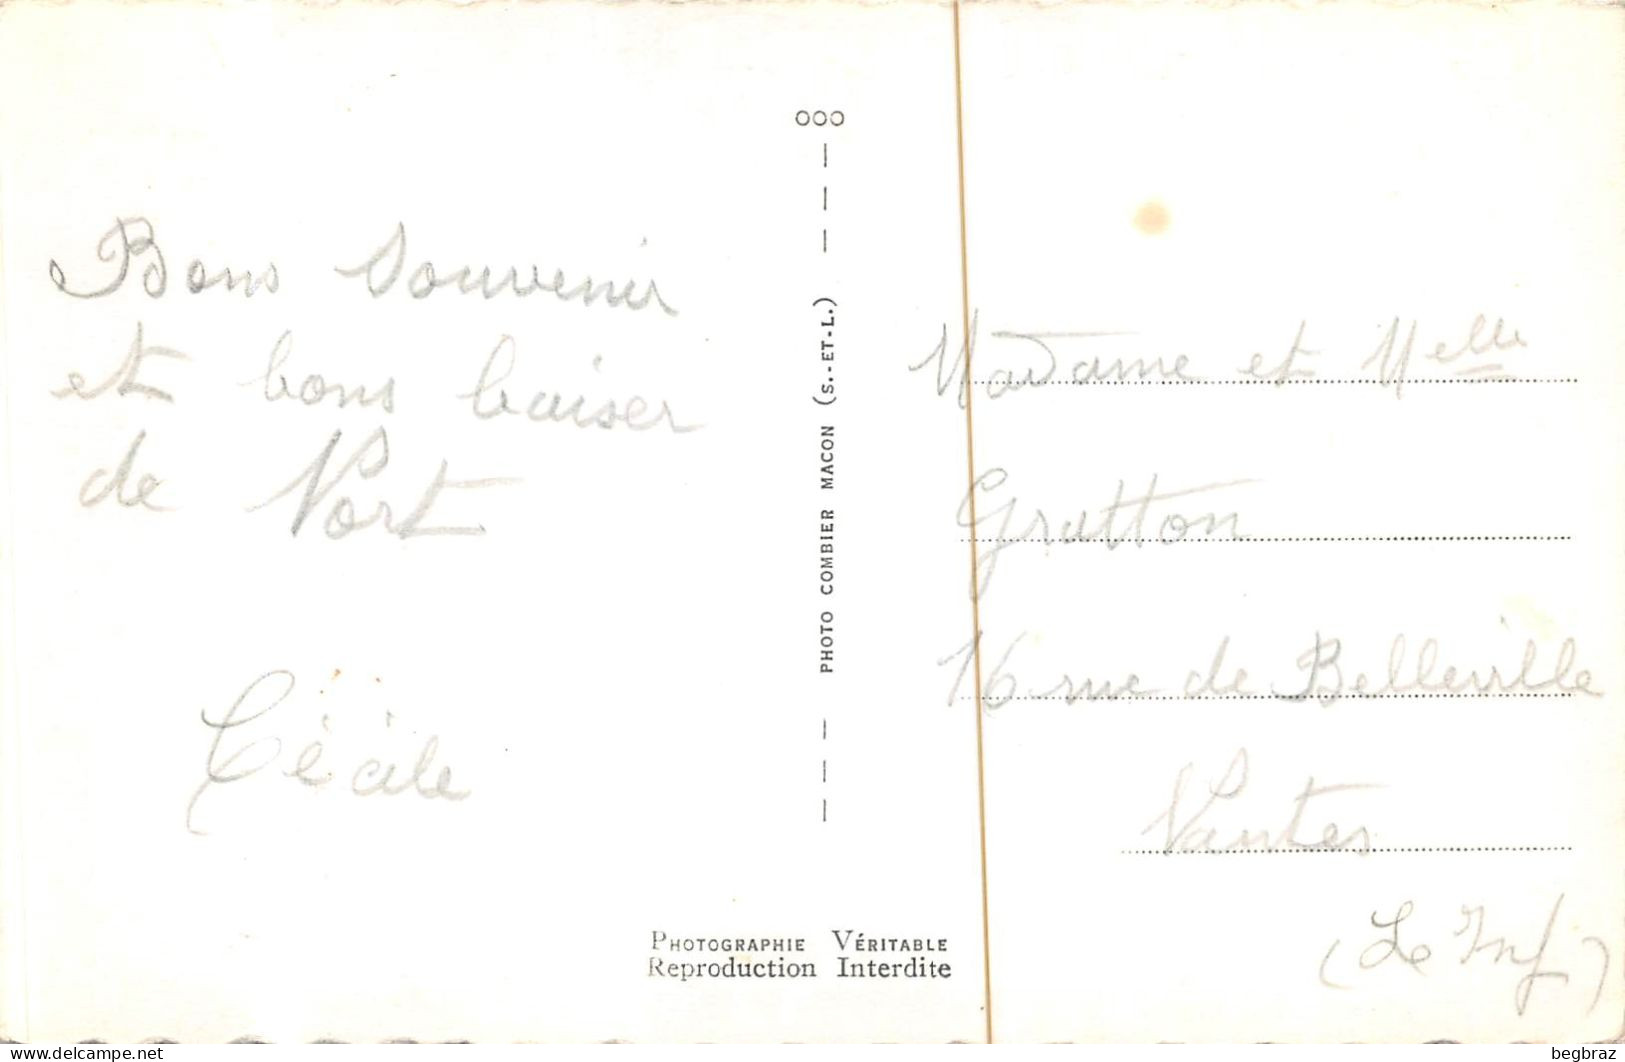 Bons Souvenir
et bons baiser
de Nort
Cécile
OOO
PHOTO COMBIER MACON (S.-ET-L.)
Madame et Melle
Gratton
16 rue de Belleville
Nantes
(Le Inf)
PHOTOGRAPHIE VÉRITABLE
Reproduction Interdite
begbraz